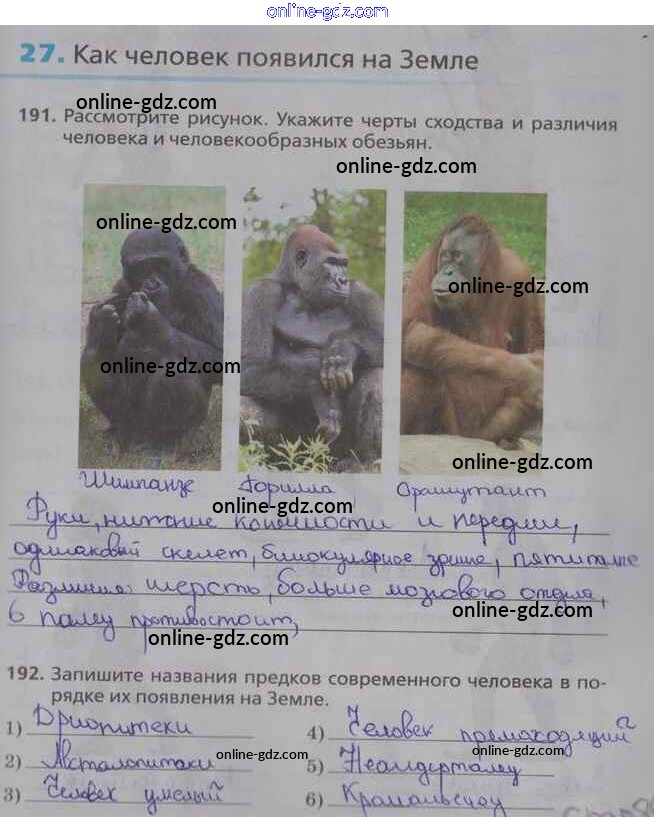 online-gdz.com
27. Как человек появился на Земле
online-gdz.com
191. Рассмотрите рисунок. Укажите черты сходства и различия
человека и человекообразных обезьян.
online-gdz.com
online-gdz.com
online-gdz.com
online-gdz.com
online-gdz.com
Шимпанзе Горилла Орангутанг
online-gdz.com
Руки, нижние конечности и передние,
одинаковый скелет, бинокулярное зрение,
Различия: шерсть, больше мозгового отдела,
online-gdz.com
6 палец противостоит,
online-gdz.com
192. Запишите названия предков современного человека в по-
рядке их появления на Земле.
1) Дриопитеки 4) Человек прямоходящий
online-gdz.com online-gdz.com
2) 5) Неандерталец
3) Человек умелый 6)